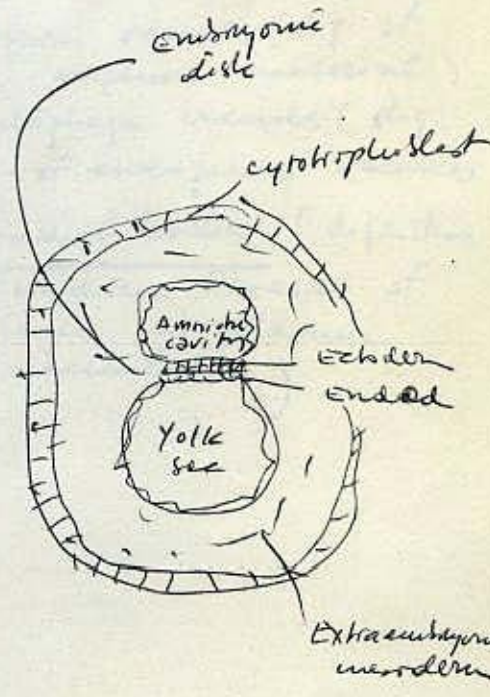 Embryonic
disk
cytotrophoblast
Amniotic
cavity
Ectoderm
Endod
Yolk
sac
Extraembryon
mesoderm